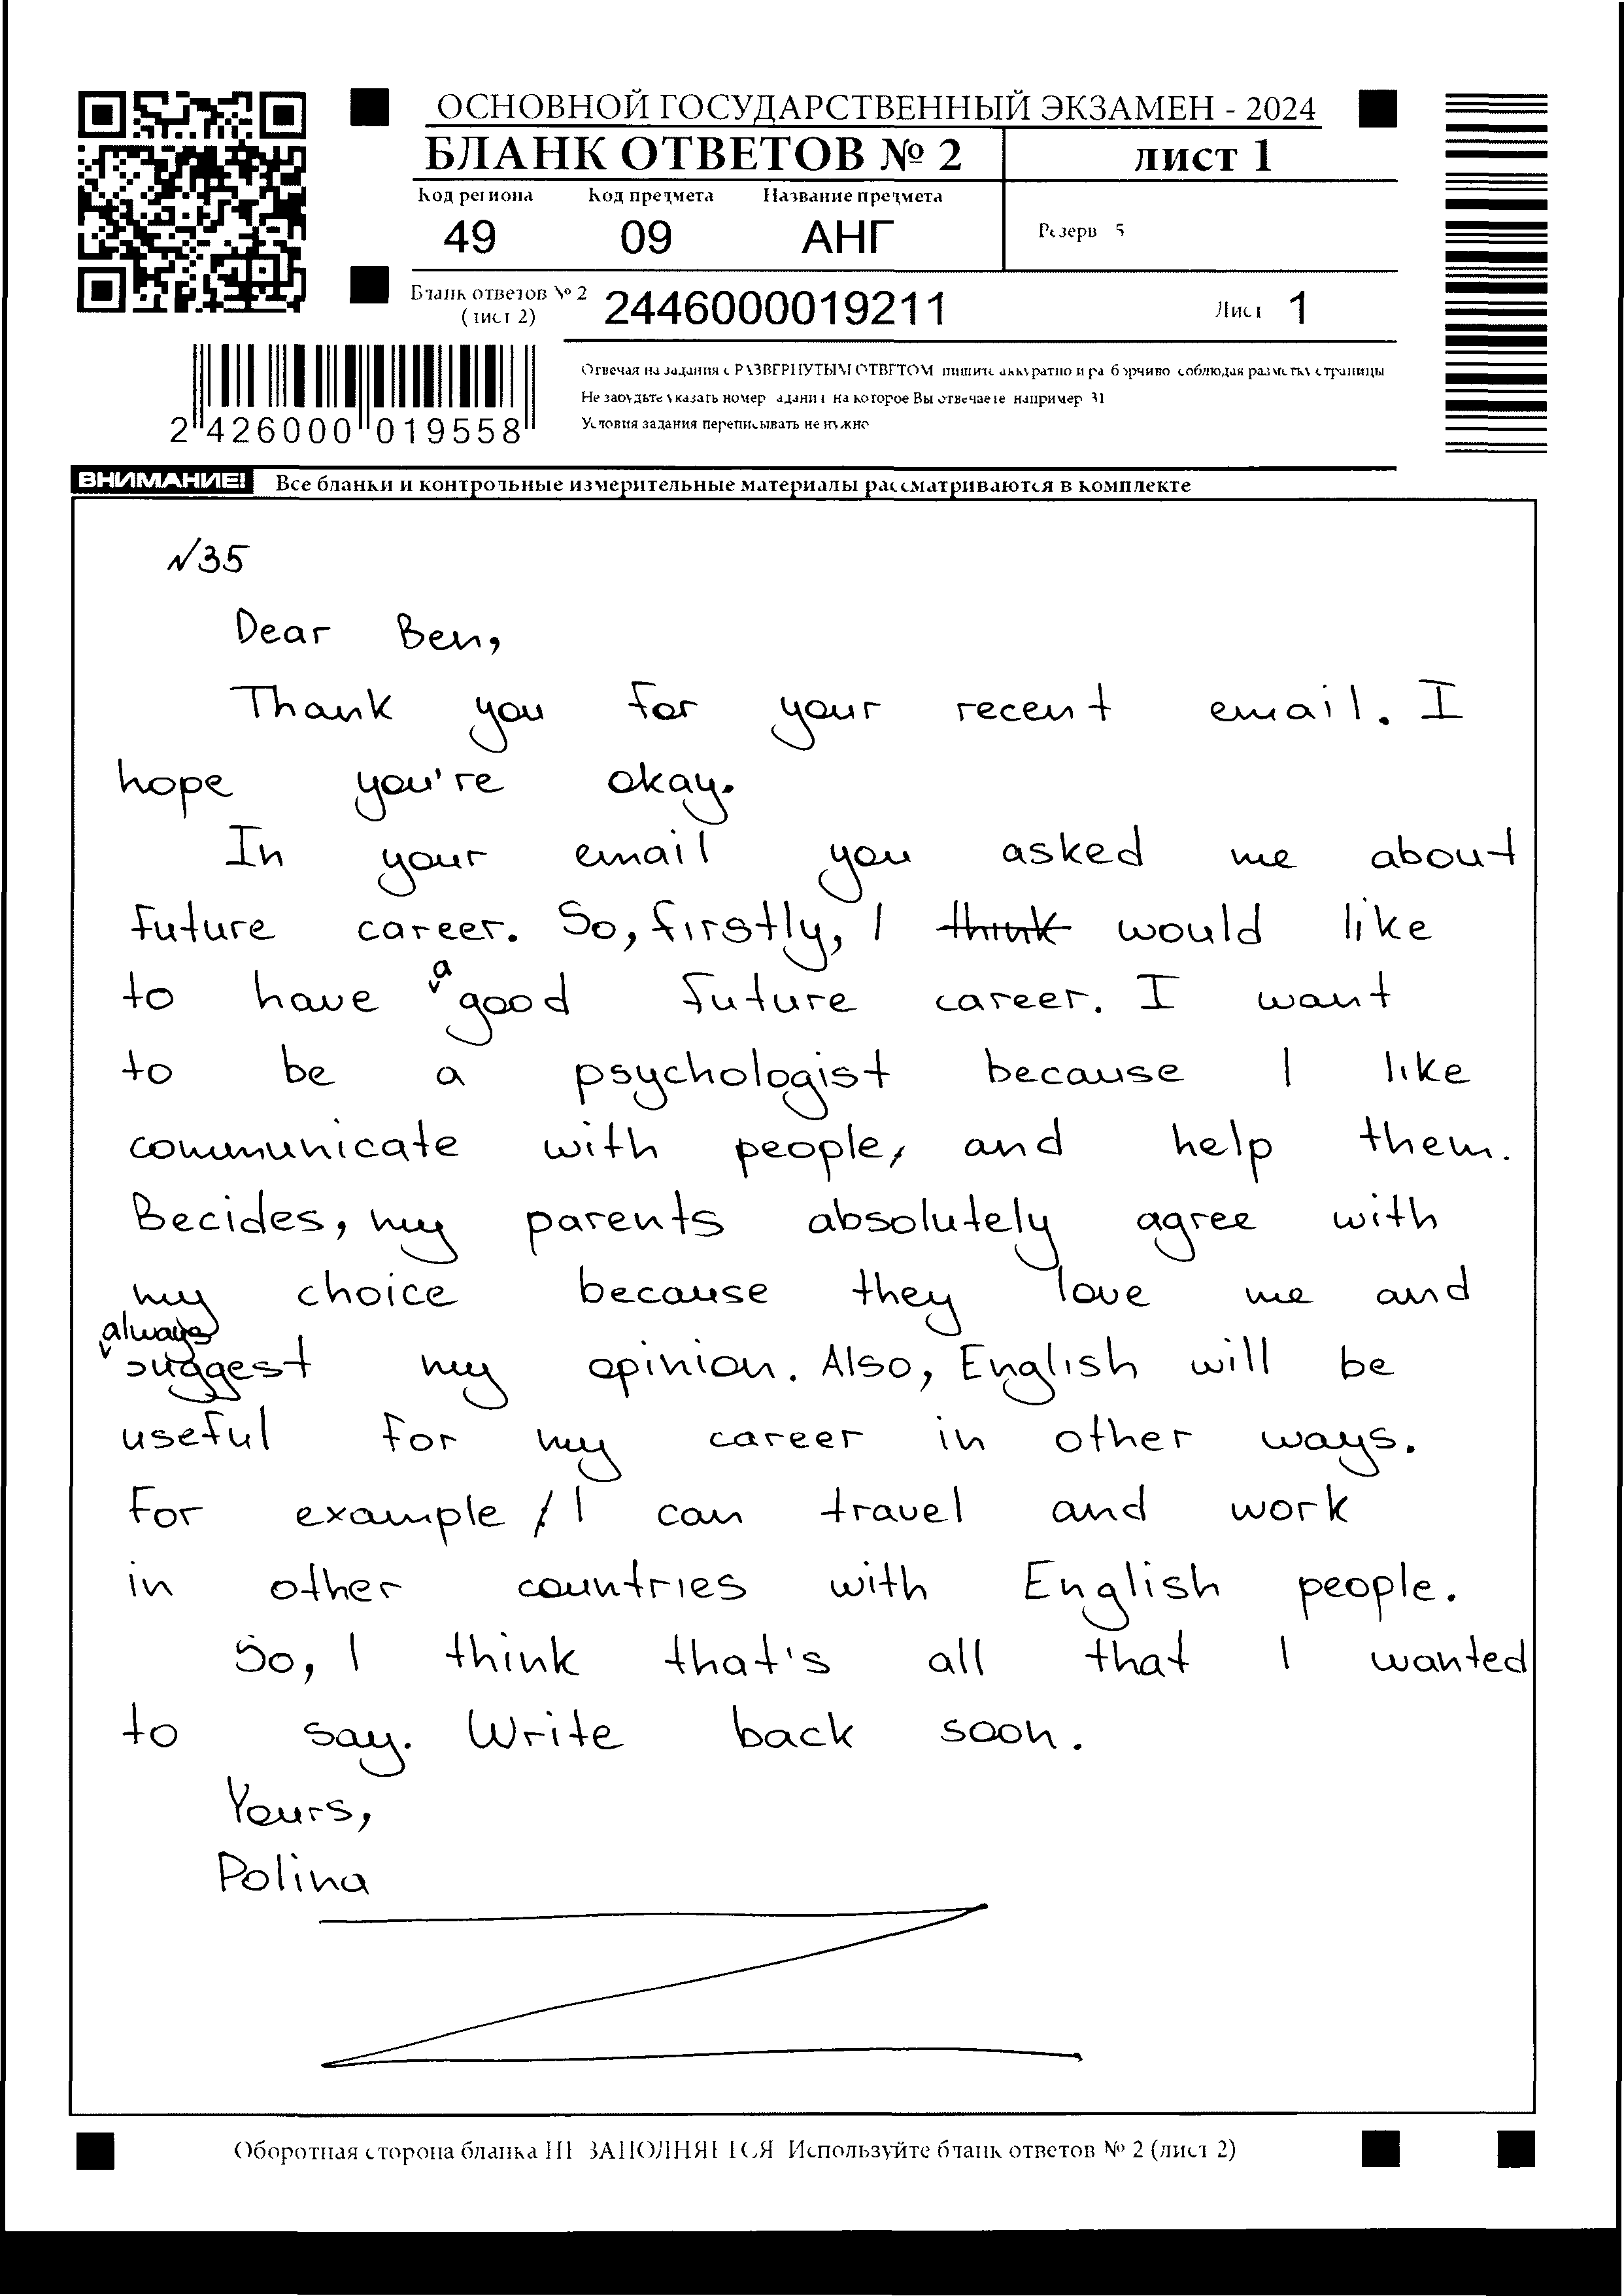 ОСНОВНОЙ ГОСУДАРСТВЕННЫЙ ЭКЗАМЕН - 2024
БЛАНК ОТВЕТОВ № 2 лист 1
Код региона Код предмета Название предмета
49 09 АНГ Резерв 5
Бланк ответов № 2 (лист 2) 2446000019211 Лист 1
Отвечая на задания с РАЗВЕРНУТЫМ ОТВЕТОМ пишите аккуратно и разборчиво соблюдая разметку страницы
Не забудьте указать номер задания на которое Вы отвечаете например 31
Условия задания переписывать не нужно
2 426000 019558
ВНИМАНИЕ! Все бланки и контрольные измерительные материалы рассматриваются в комплекте
№35
Dear Ben,
Thank you for your recent email. I
hope you're okay.
In your email you asked me about
future career. So, firstly, I think would like
to have a good future career. I want
to be a psychologist because I like
communicate with people, and help them.
Becides, my parents absolutely agree with
my choice because they love me and
always suggest my opinion. Also, English will be
useful for my career in other ways.
For example, I can travel and work
in other countries with English people.
So, I think that's all that I wanted
to say. Write back soon.
Yours,
Polina
Оборотная сторона бланка НЕ ЗАПОЛНЯЕТСЯ Используйте бланк ответов № 2 (лист 2)